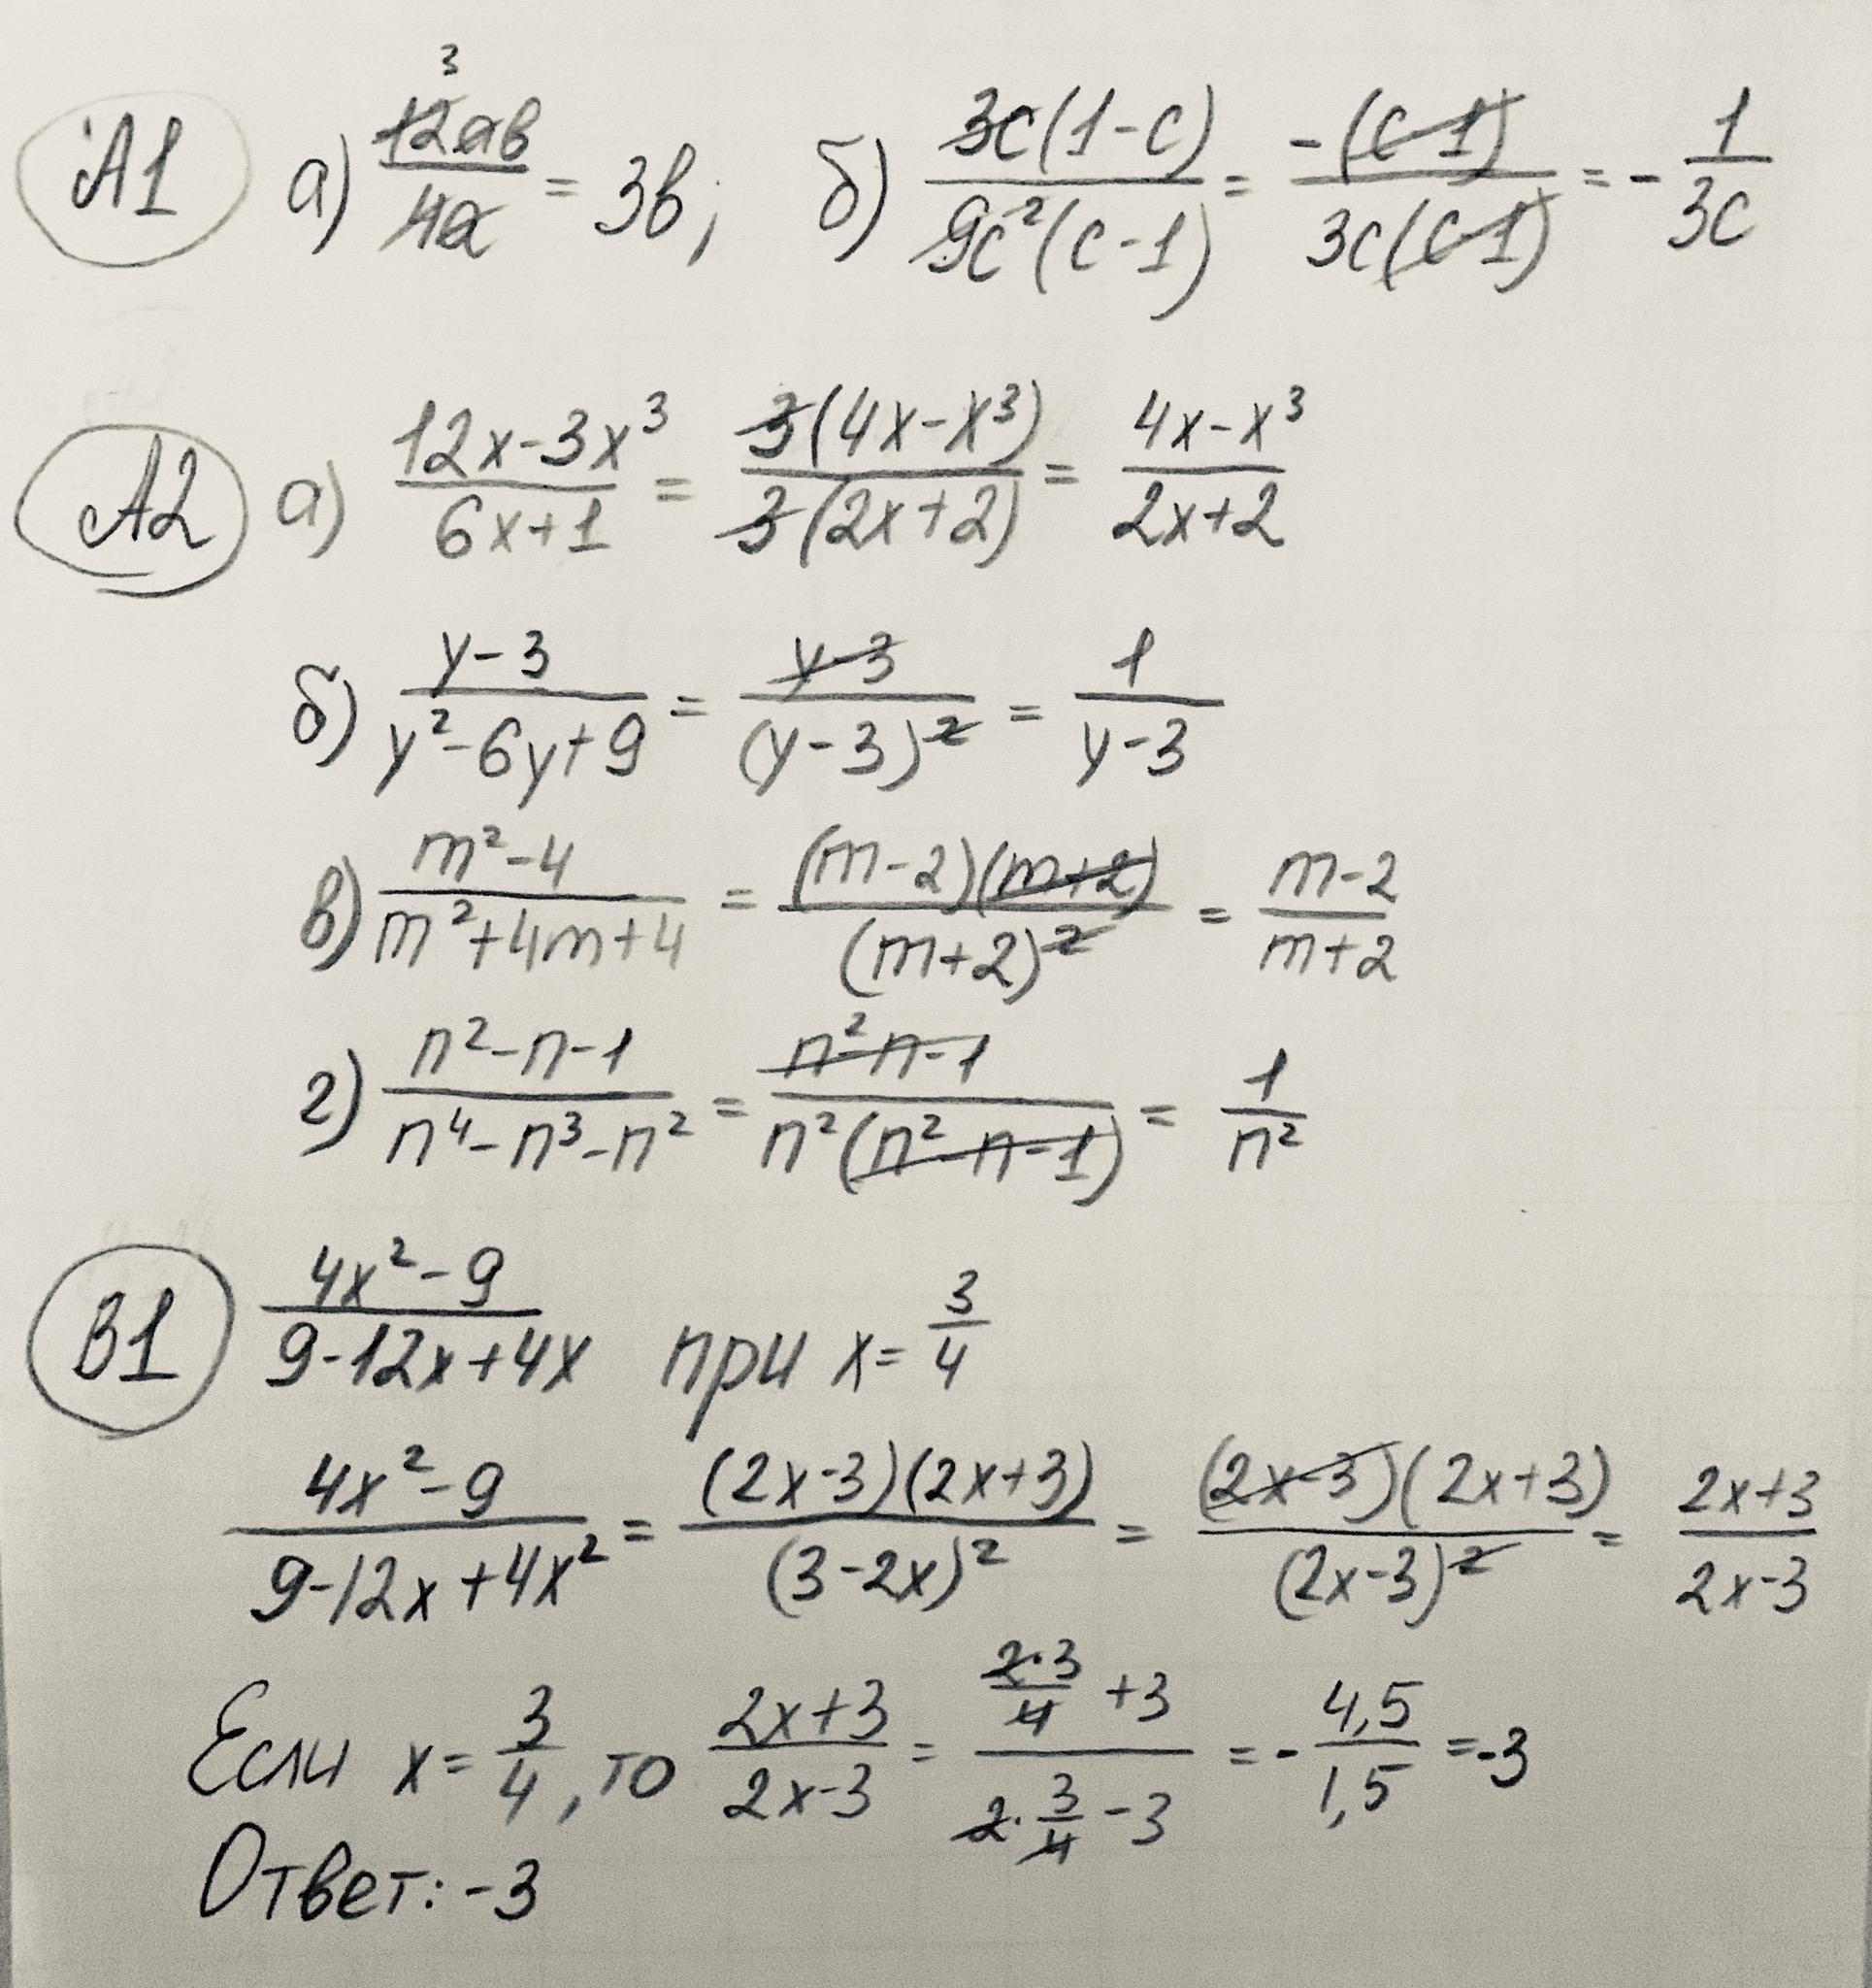 А1 а) 12ав/4а = 3в; б) 3с(1-с)/9с²(с-1) = -(с-1)/3с(с-1) = -1/3с
А2 а) 12x-3x³/6x+1 = 3(4x-x³)/3(2x+2) = 4x-x³/2x+2
б) y-3/y²-6y+9 = y-3/(y-3)² = 1/y-3
в) m²-4/m²+4m+4 = (m-2)(m+2)/(m+2)² = m-2/m+2
г) n²-n-1/n⁴-n³-n² = n²-n-1/n²(n²-n-1) = 1/n²
В1 4x²-9/9-12x+4x при x=3/4
4x²-9/9-12x+4x² = (2x-3)(2x+3)/(3-2x)² = (2x-3)(2x+3)/(2x-3)² = 2x+3/2x-3
Если x=3/4, то 2x+3/2x-3 = 2·3/4+3/2·3/4-3 = -4,5/1,5 = -3
Ответ: -3